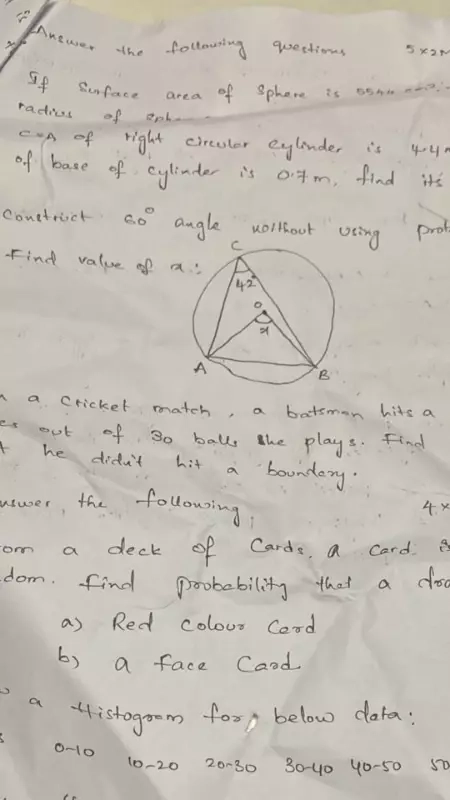 Answer the following questions 5x2M
If Surface area of Sphere is 5544 cm².
radius of sph
C.S.A of right circular cylinder is 4.4m
of base of cylinder is 0.7m, find its
Construct 60° angle without using prot
Find value of x:
C
42°
O
x
A B
a Cricket match, a batsman hits a
out of 30 balls she plays. Find
he didn't hit a boundary.
nswer the following 4x
om a deck of Cards, a card is
dom. find probability that a dra
a) Red colour Card
b) a face Card
a Histogram for below data:
0-10 10-20 20-30 30-40 40-50 50